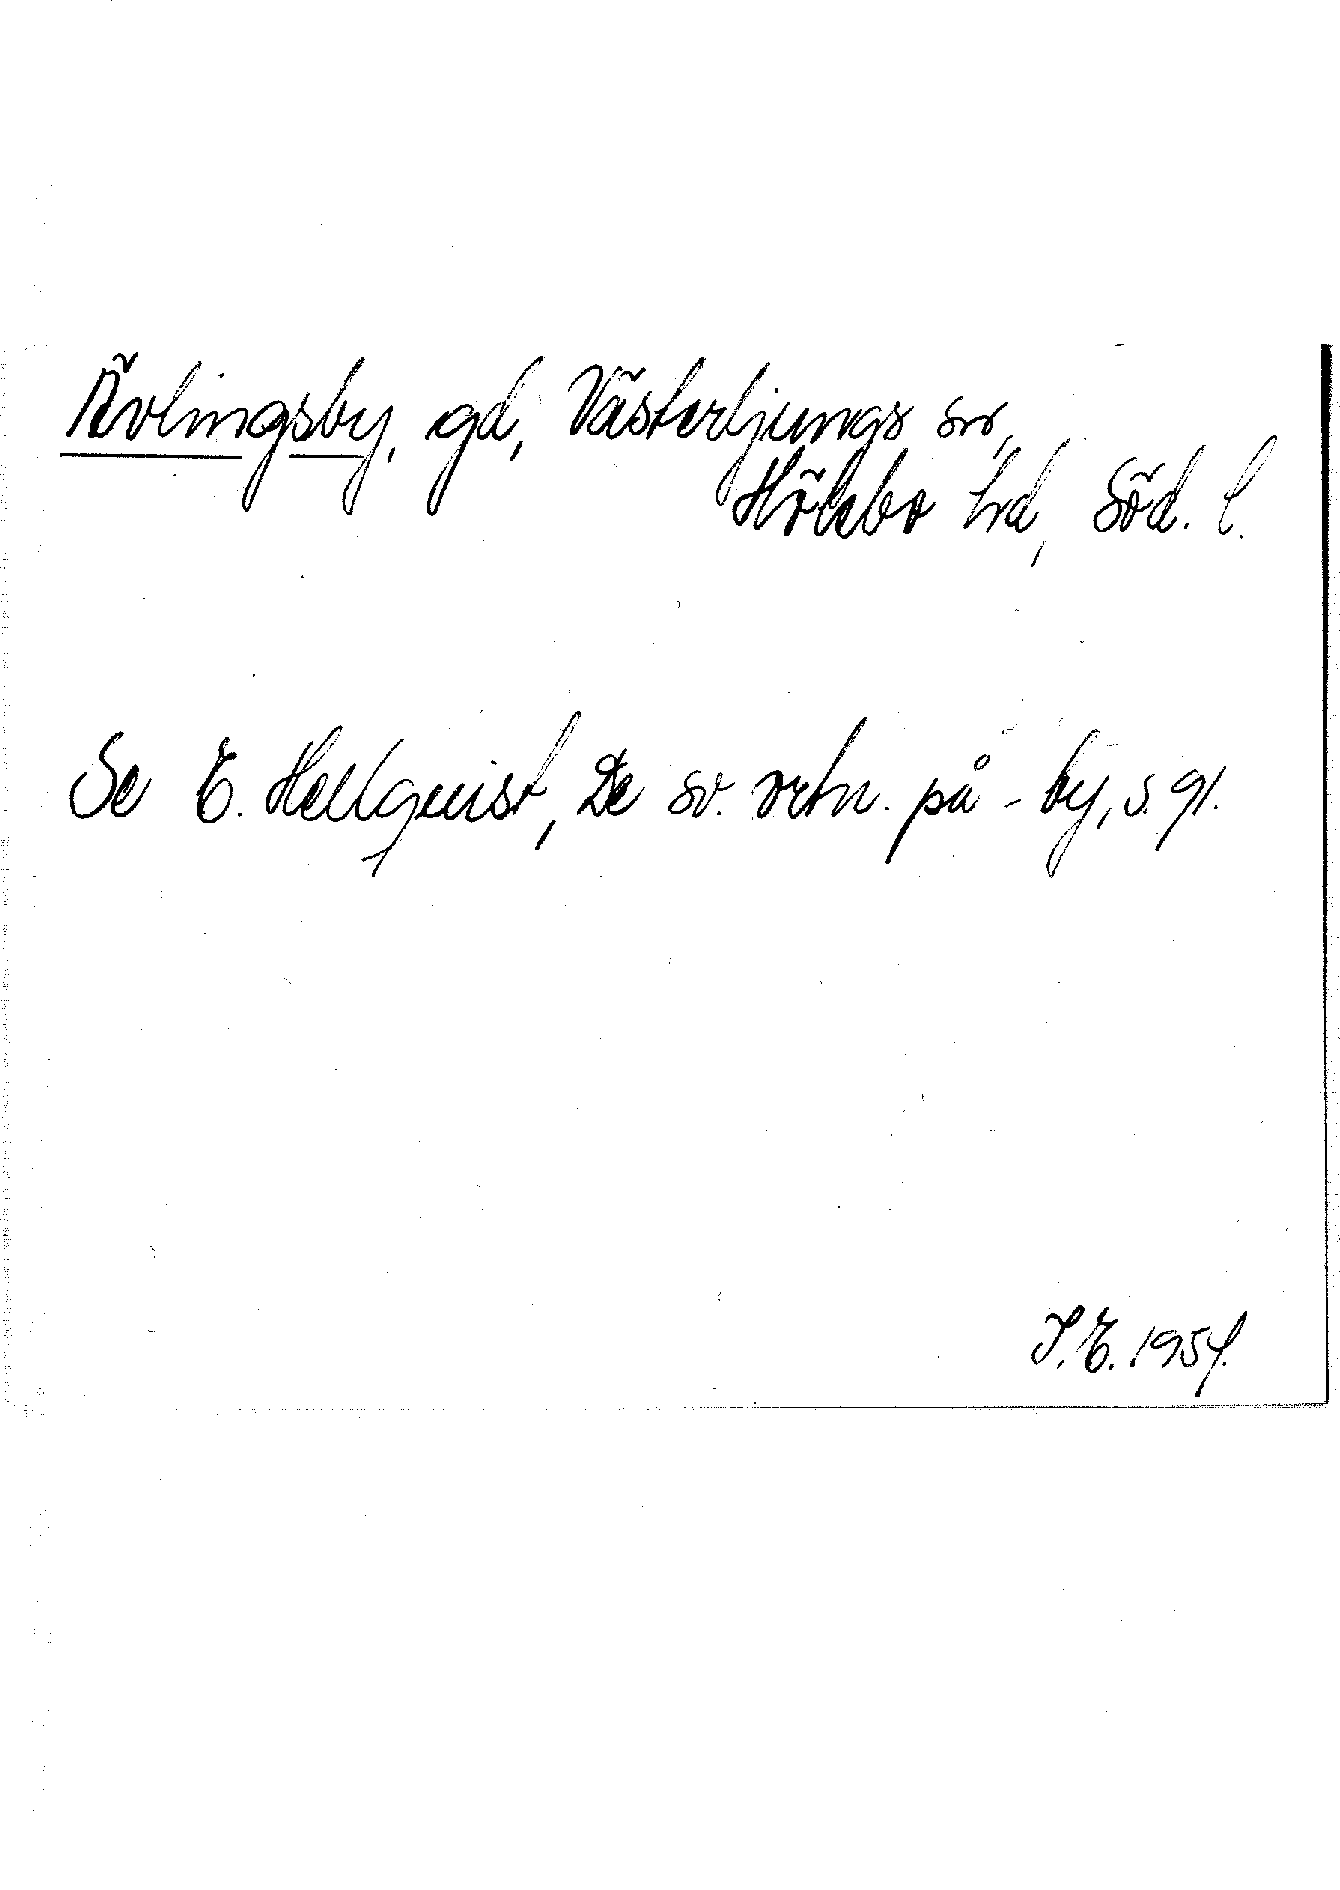 Ävlingsby, gd, Västerljungs sn,
Hölebo hd, Söd. l.
Se E. Hellquist, De sv. ortn. på -by, s. 91.
I.E. 1954.